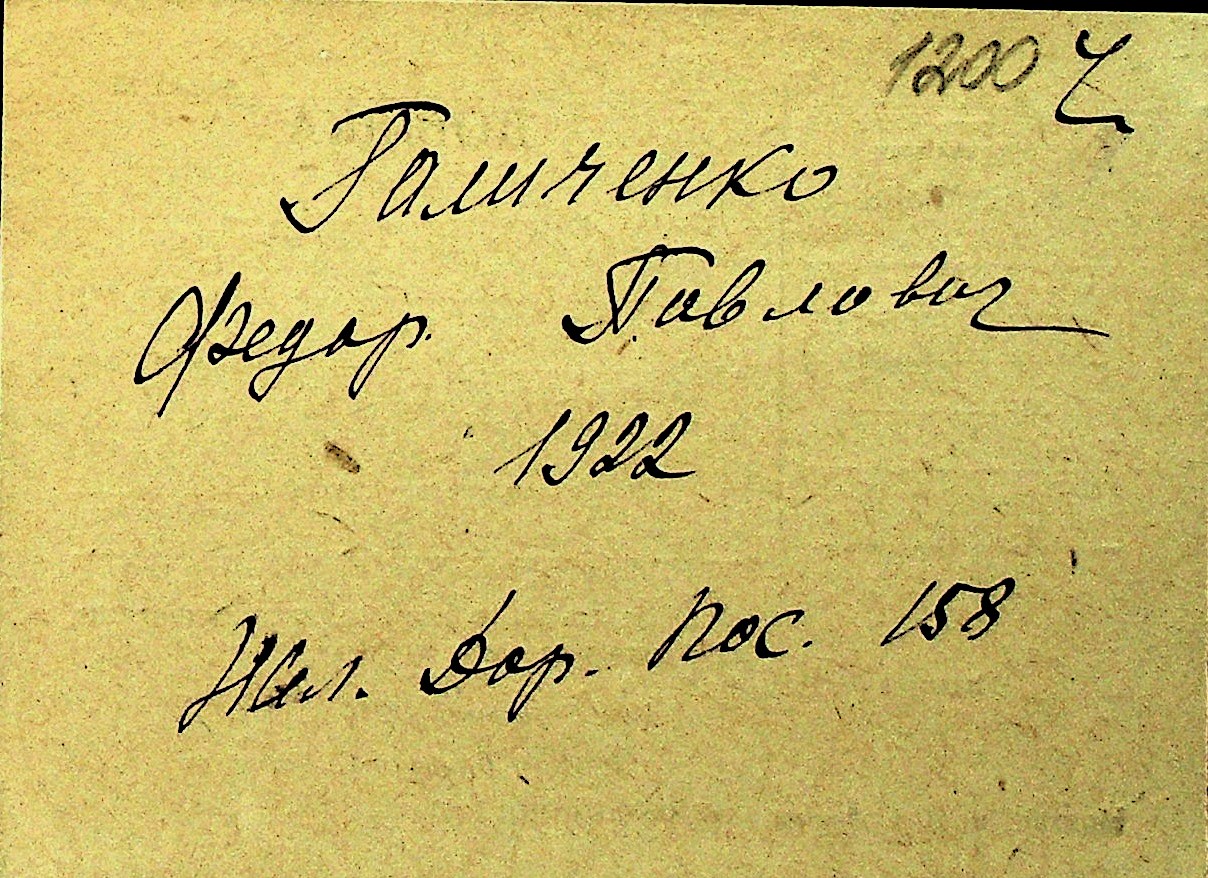 1200
Галиченко
Федор. Павлович
1922
Жел. Дор. пос. 158